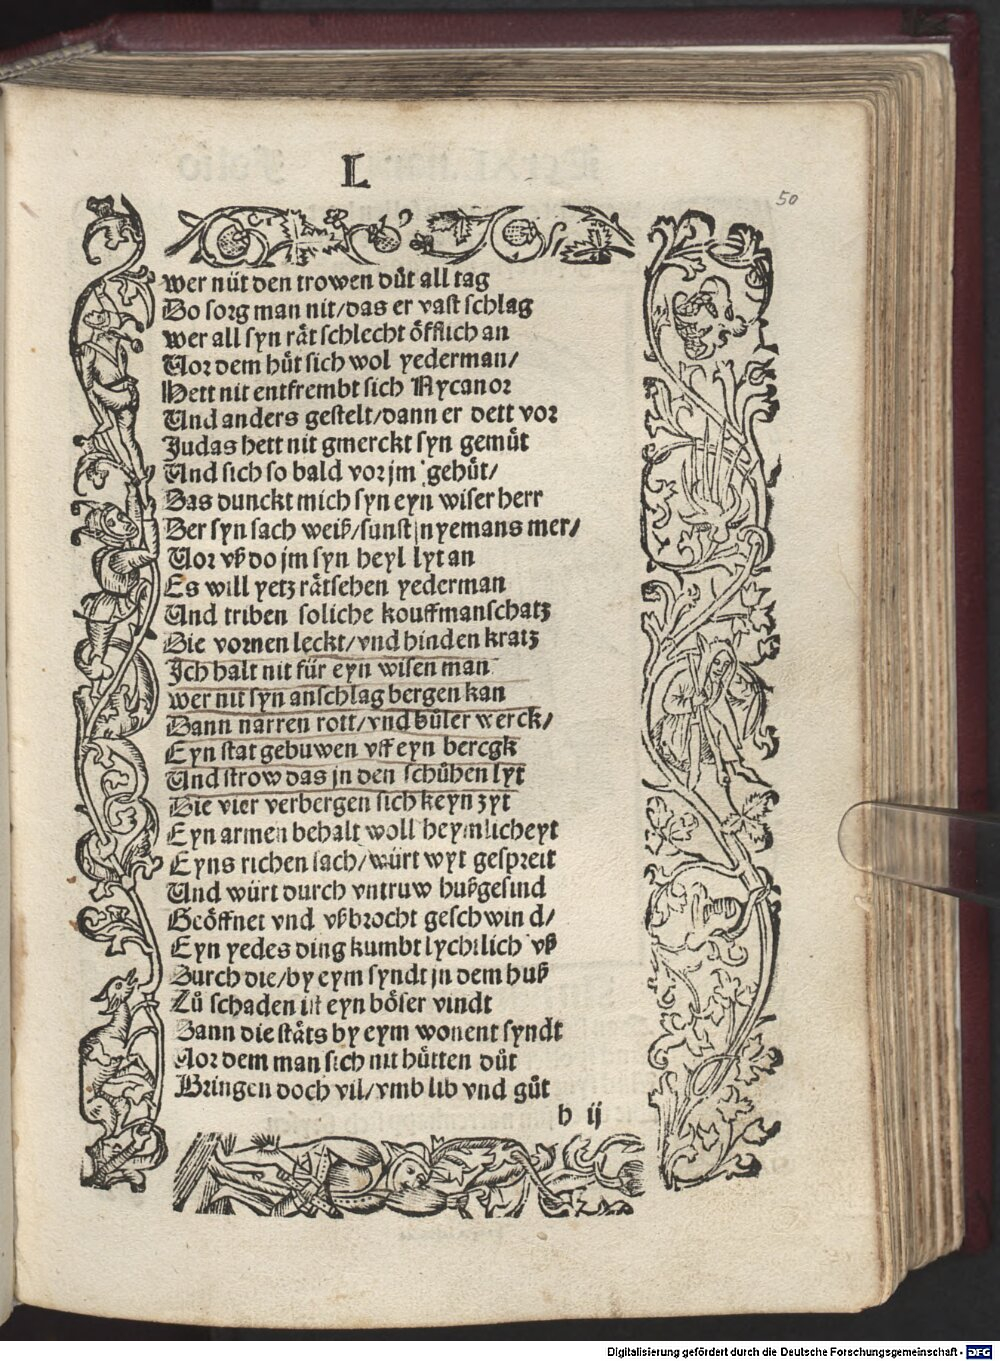 L
50
wer nüt den trowen důt all tag
Do sorg man nit/das er vast schlag
wer all syn rät schlecht öfflich an
Vor dem hůt sich wol yederman/
Hett nit entfrembt sich Nycanor
Vnd anders gestelt/dann er dett vor
Judas hett nit gmerckt syn gemůt
Vnd sich so bald vor jm gehůt/
Das dunckt mich syn eyn wiser herr
Der syn sach weiß/sunst nyemans mer/
Vor vß do jm syn heyl lyt an
Es will yetz rätsehen yederman
Vnd triben soliche kouffmanschatz
Die vornen leckt/vnd hinden kratz
Ich halt nit für eyn wisen man
wer nit syn anschlag bergen kan
Dann narren rott/vnd bůler werck/
Eyn stat gebuwen vff eyn bercgk
Vnd strow das jn den schůhen lyt
Die vier verbergen sich keyn zyt
Eyn armer behalt woll heymlicheyt
Eyns richen sach/würt wyt gespreit
Vnd würt durch vntruw hußgesind
Geöffnet vnd vßbrocht geschwind/
Eyn yedes ding kumbt lychtlich vß
Durch die/by eym syndt jn dem huß
Zů schaden ist eyn böser vindt
Dann die stäts by eym wonent syndt
Vor dem man sich nit hütten důt
Bringen doch vil/vmb lib vnd gůt
h ij
Digitalisierung gefördert durch die Deutsche Forschungsgemeinschaft - DFG